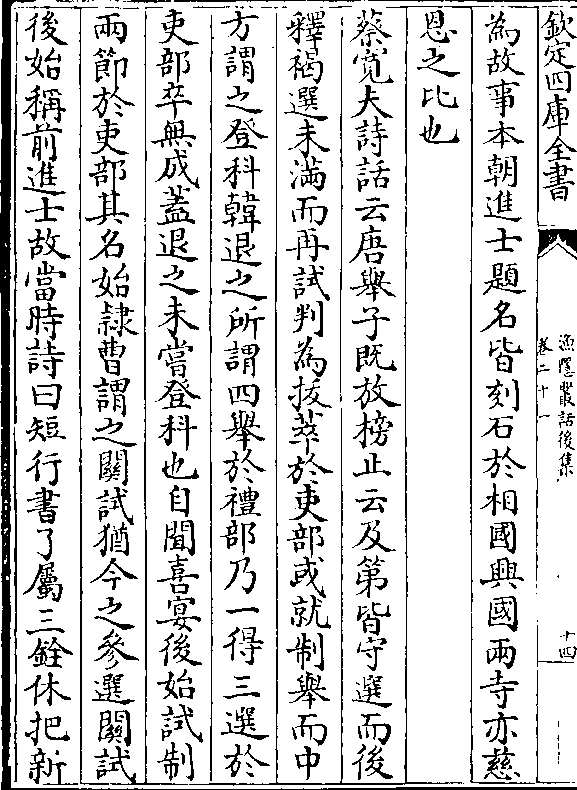 欽定四庫全書
漁隱叢話後集
卷二十一
十四
為故事本朝進士題名皆刻石於相國興國兩寺亦慈
恩之比也
蔡寛夫詩話云唐舉子既放榜止云及第皆守選而後
釋褐選未滿而再試判為拔萃於吏部或就制舉而中
方謂之登科韓退之所謂四舉於禮部乃一得三選於
吏部卒無成蓋退之未嘗登科也自聞喜宴後始試制
兩節於吏部其名始隷曹謂之關試猶今之參選關試
後始稱前進士故當時詩曰短行書了屬三銓休把新